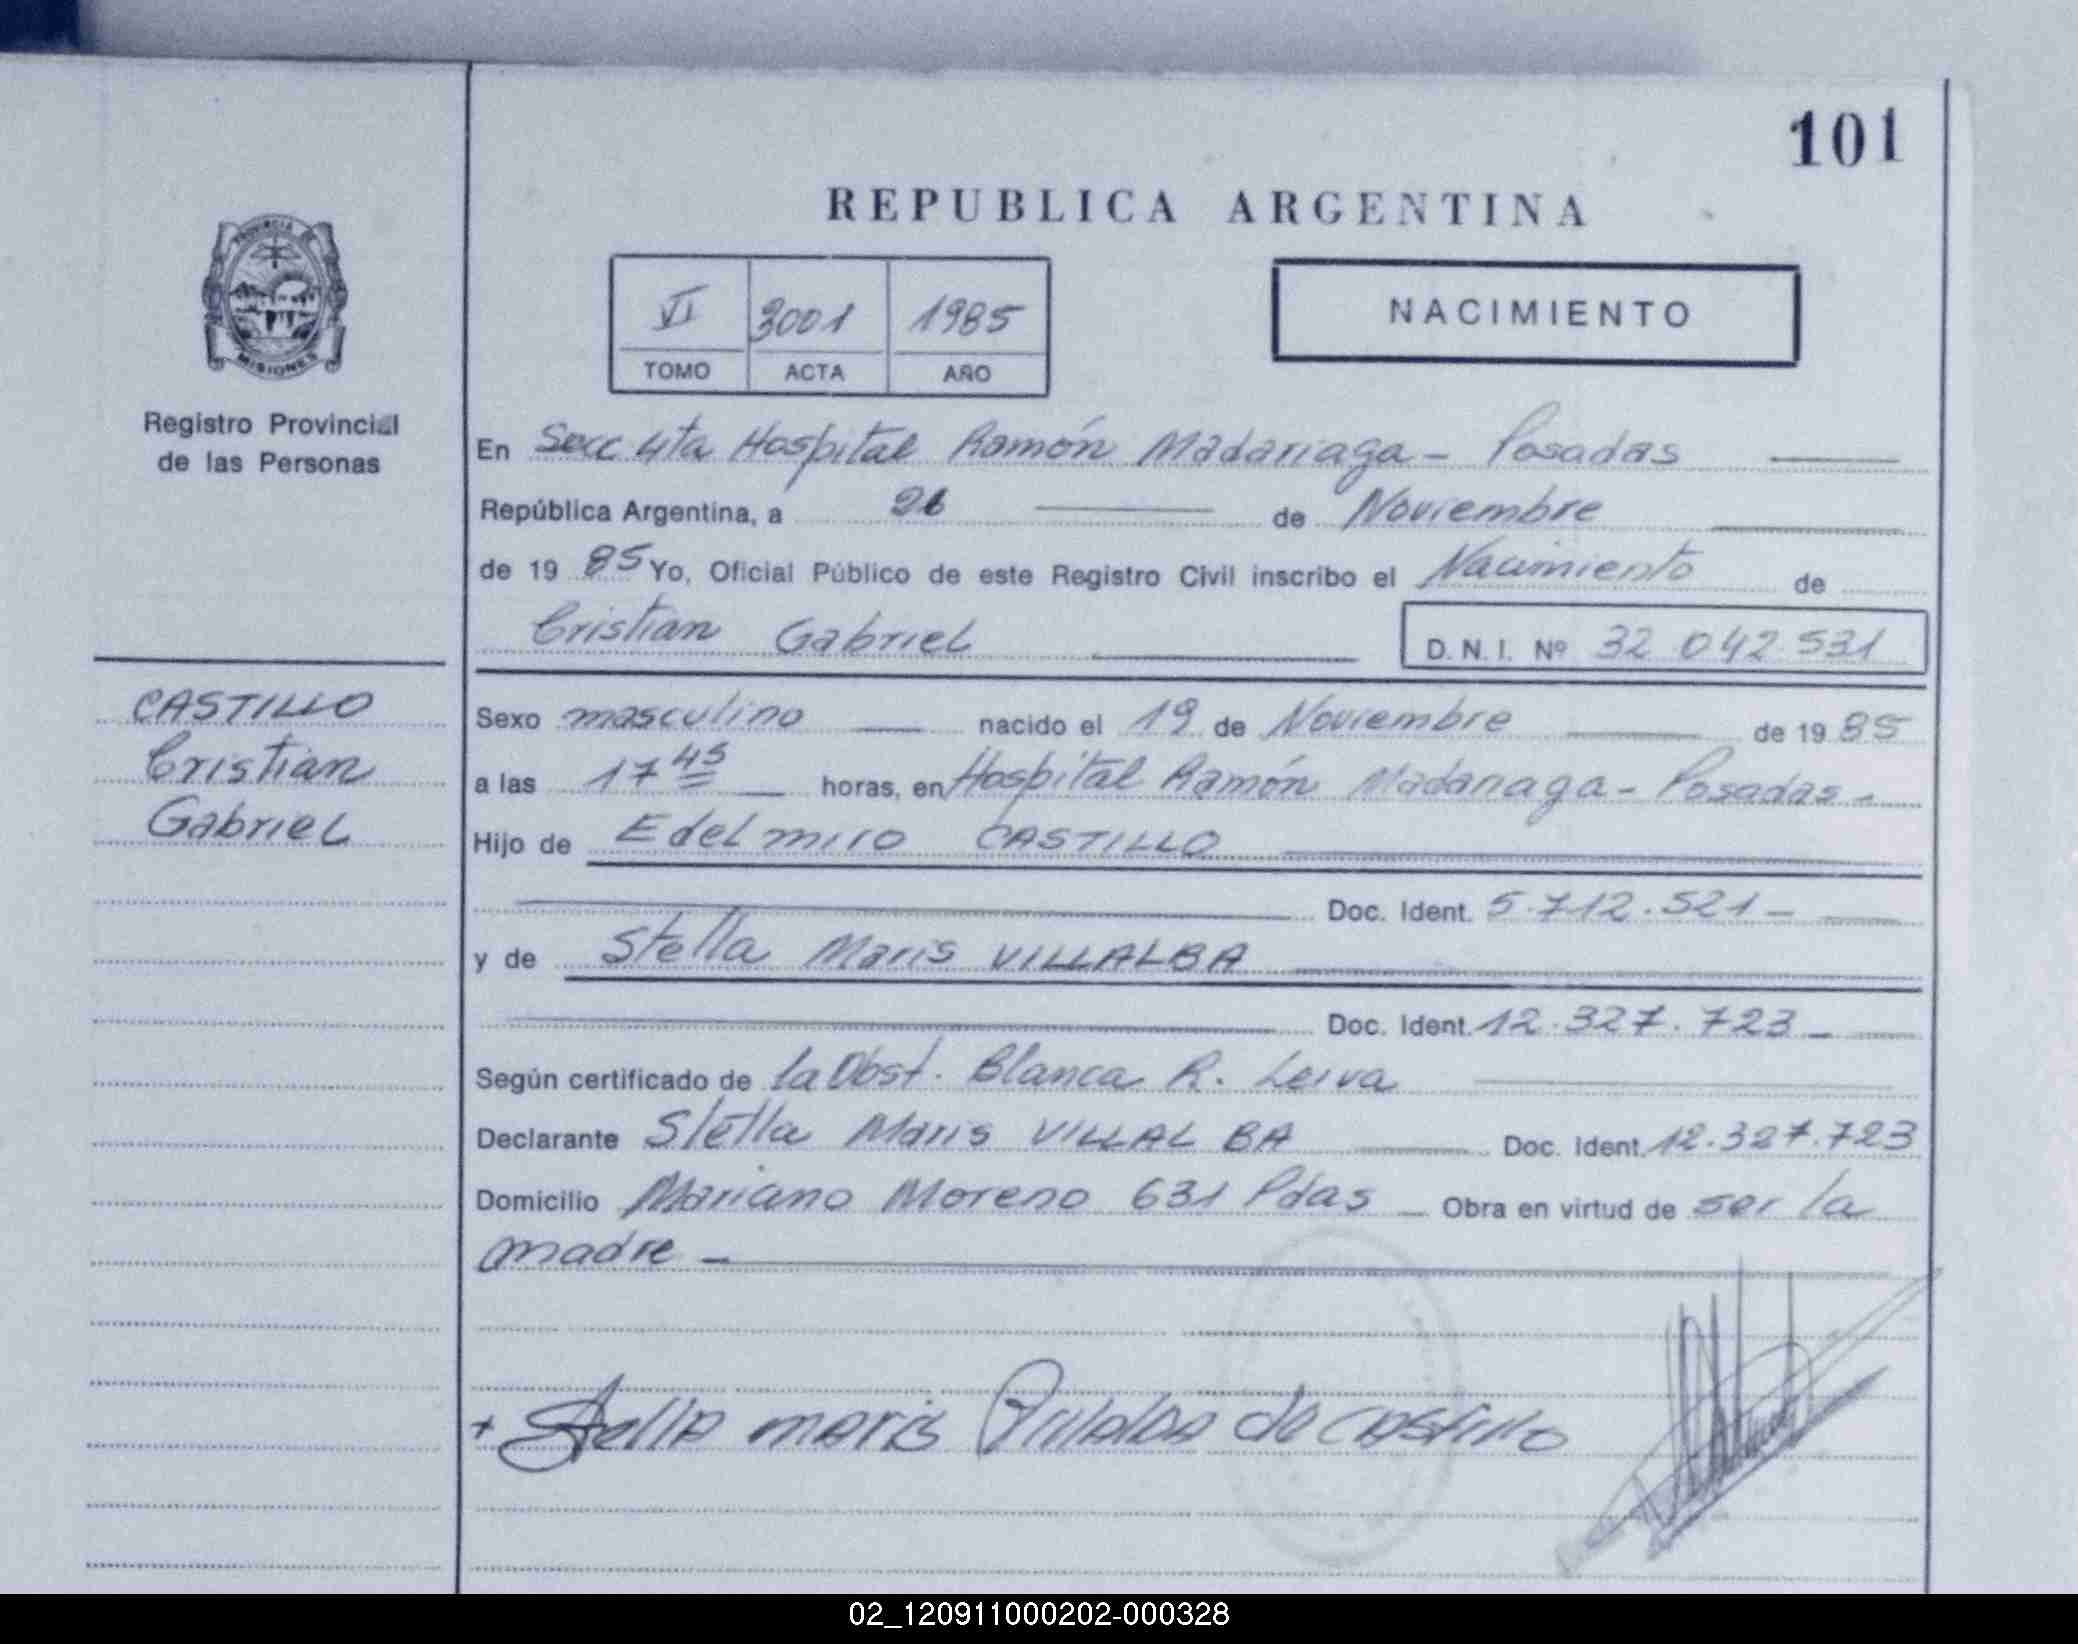 101
REPUBLICA ARGENTINA
PROVINCIA DE
MISIONES
Registro Provincial
de las Personas
VI 3001 1985
TOMO ACTA AÑO
NACIMIENTO
En Secc 4ta Hospital Ramón Madariaga - Posadas
República Argentina, a 26 de Noviembre
de 19 85 Yo, Oficial Público de este Registro Civil inscribo el Nacimiento de
Cristian Gabriel D.N.I. Nº 32 042.531
CASTILLO
Cristian
Gabriel
Sexo masculino nacido el 19 de Noviembre de 19 85
a las 17 45 horas, en Hospital Ramón Madariaga - Posadas -
Hijo de Edelmiro CASTILLO
Doc. Ident. 5.712.521 -
y de Stella Maris VILLALBA
Doc. Ident. 12.327.723 -
Según certificado de la Obst. Blanca R. Leiva
Declarante Stella Maris VILLALBA Doc. Ident. 12.327.723
Domicilio Mariano Moreno 631 Pdas - Obra en virtud de ser la
madre -
+ Stella maris Villalba de castillo
02_120911000202-000328